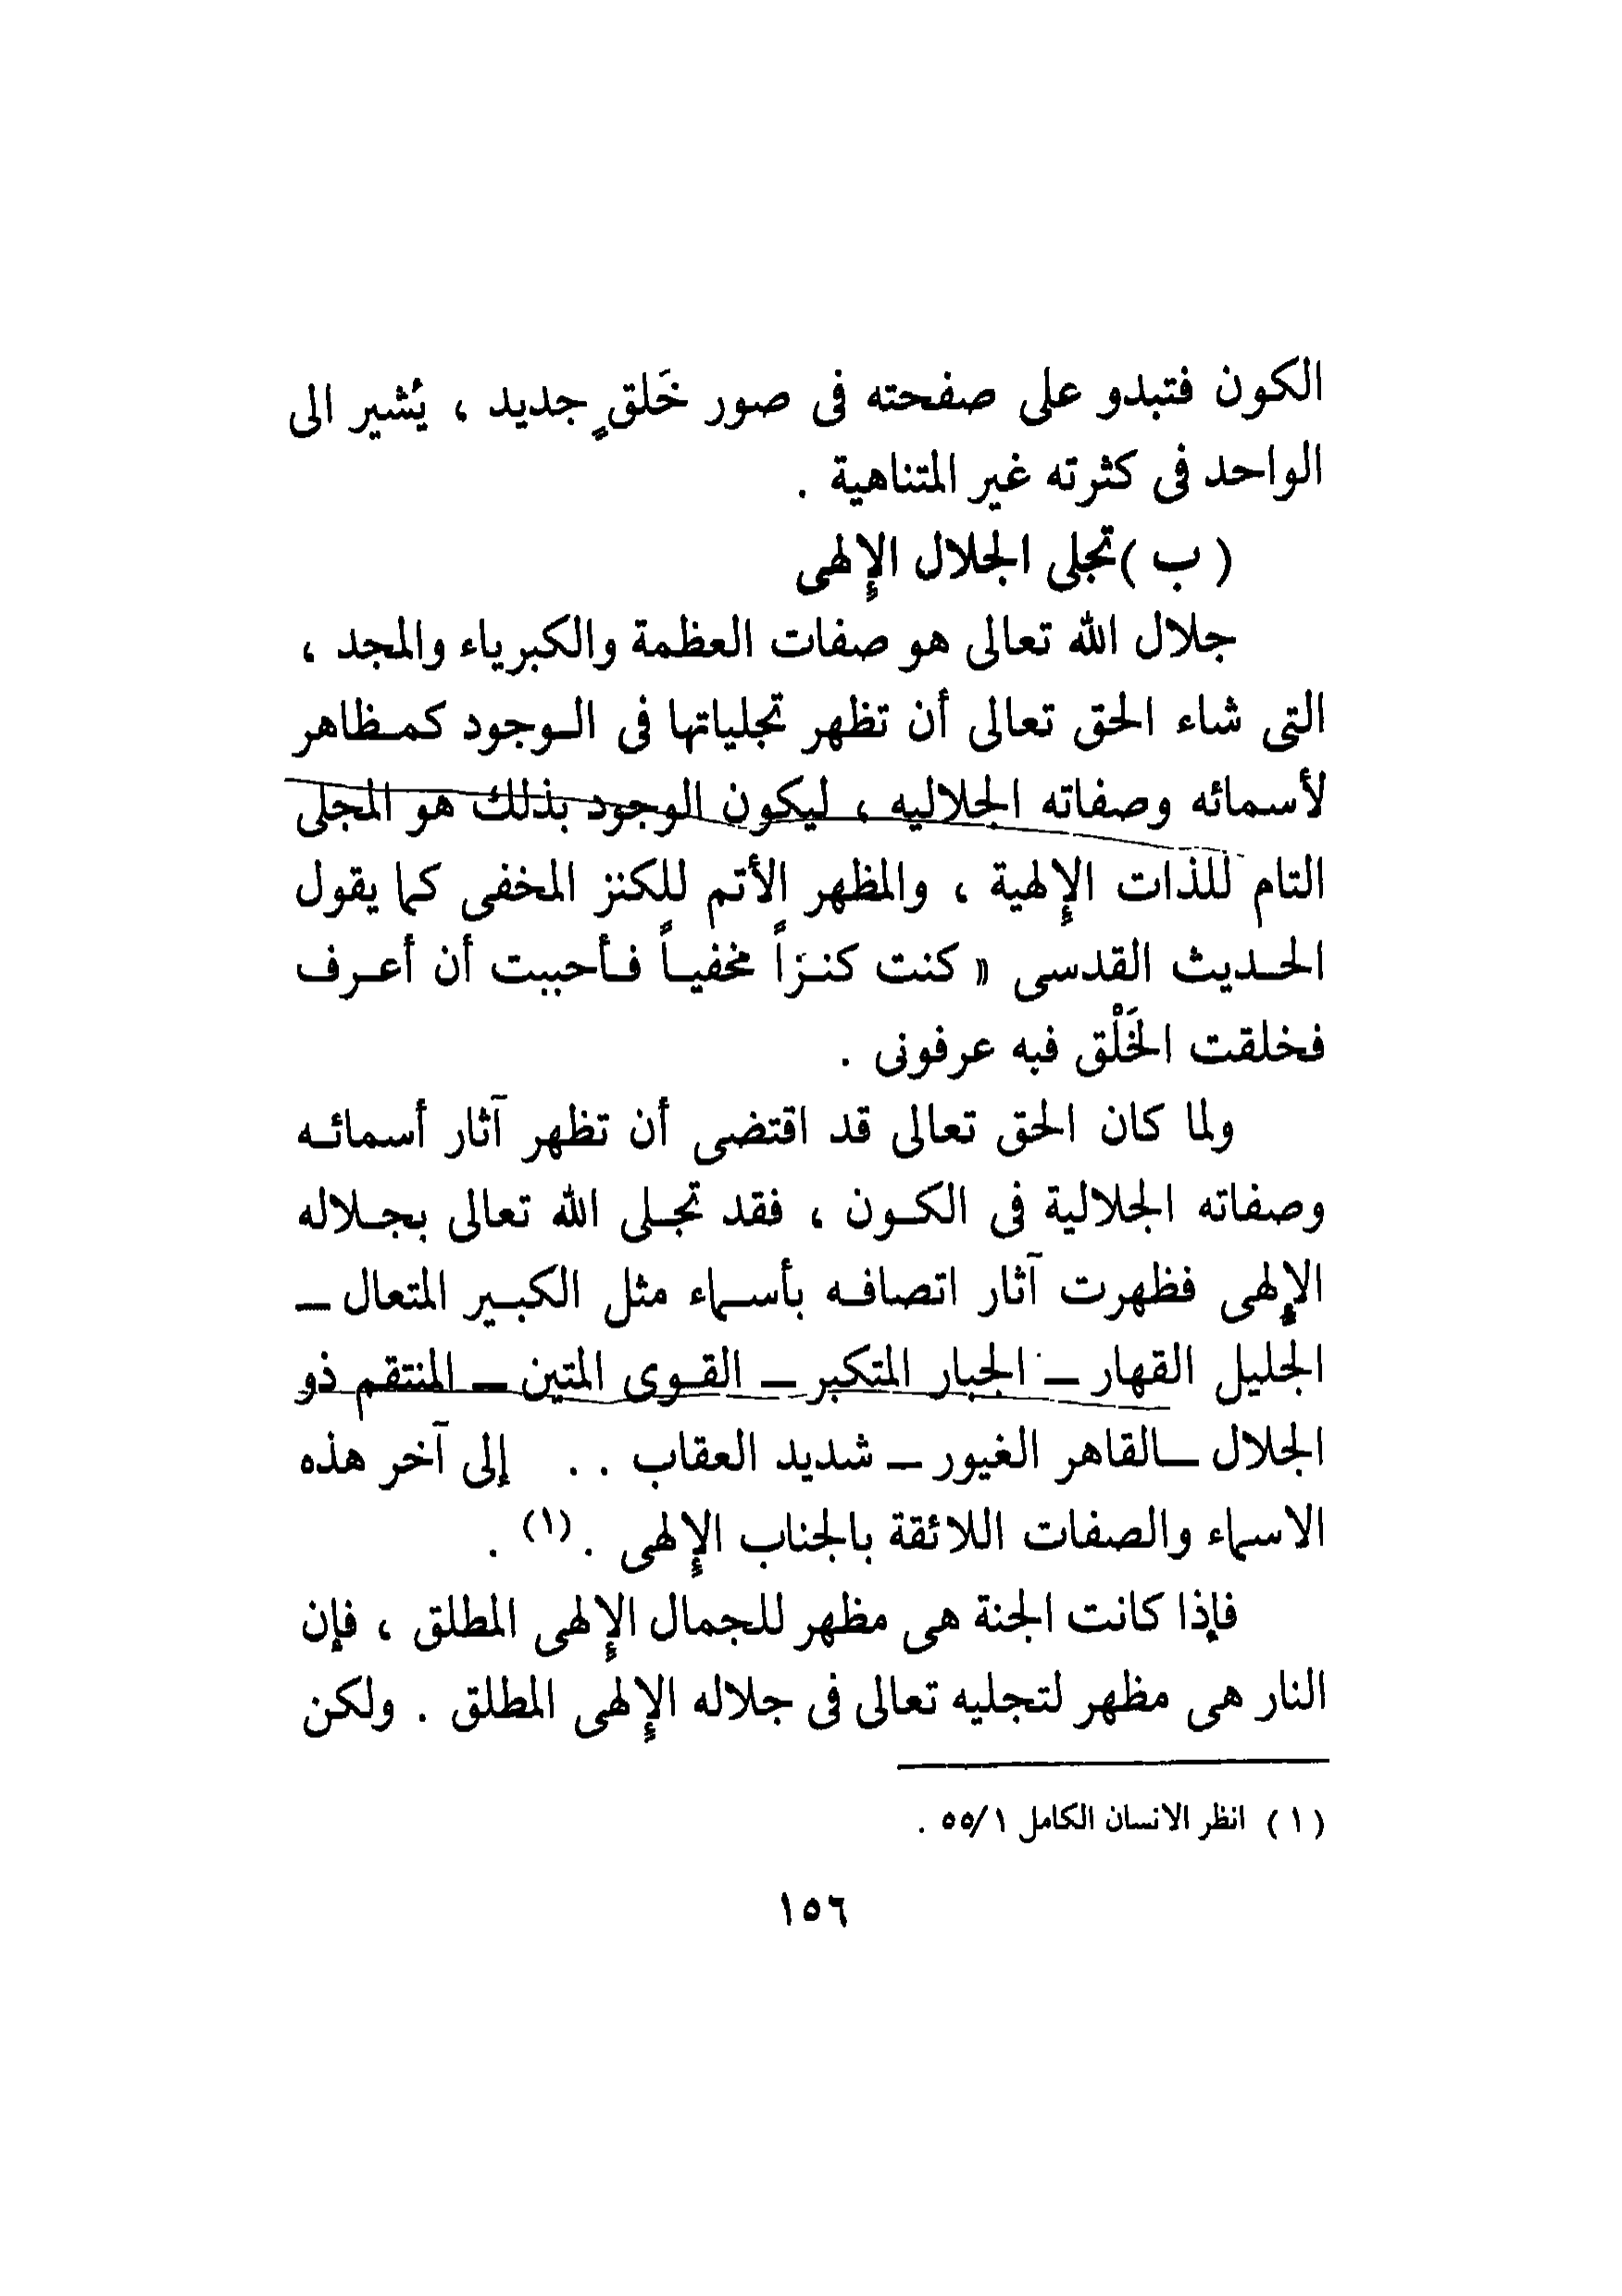 الكون فتبدو على صفحته فى صور خَلقٍ جديد ، يُشير الى
الواحد فى كثرته غير المتناهية .
( ب )تجلى الجلال الإلهى
جلال الله تعالى هو صفات العظمة والكبرياء والمجد ،
التى شاء الحق تعالى أن تظهر تجلياتها فى الـوجود كمـظاهر
لأسمائه وصفاته الجلاليه ، ليكون الوجود بذلك هو المجلى
التام للذات الإلهية ، والمظهر الأتم للكنز المخفى كما يقول
الحـديث القدسى « كنت كنـزاً مخفيـاً فـأحببت أن أعـرف
فخلقت الخَلْق فبه عرفونى .
ولما كان الحق تعالى قد اقتضى أن تظهر آثار أسمائـه
وصفاته الجلالية فى الكـون ، فقد تجـلى الله تعالى بجـلاله
الإلهى فظهرت آثار اتصافـه بأسـماء مثل الكبـير المتعال ـ
الجليل القهار ـ الجبار المتكبر ـ القـوى المتين ـ المنتقم ذو
الجلال ـالقاهر الغيور ـ شديد العقاب . . إلى آخر هذه
الاسماء والصفات اللائقة بالجناب الإلهى .(١) .
فإذا كانت الجنة هى مظهر للجمال الإلهى المطلق ، فإن
النار هى مظهر لتجليه تعالى فى جلاله الإلهى المطلق . ولكن
( ١ ) انظر الانسان الكامل ٥٥/١ .
١٥٦